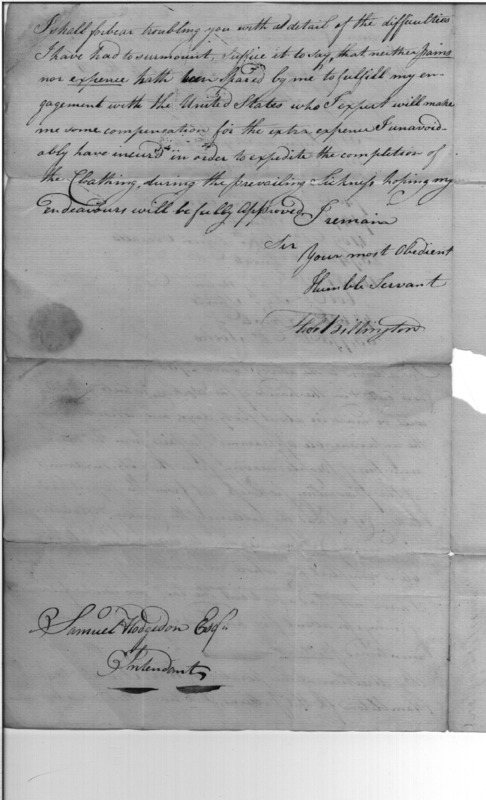 I shall forbear troubling you with a detail of the difficulties
I have had to surmount, suffice it to say, that neither pains
nor expence hath been spared by me to fulfill my en-
gagement with the United States who I expect will make
me some compensation for the extra expences I unavoid-
ably have incur'd in order to expedite the completion of
the Cloathing, during the prevailing Sickness hoping my
Endeavours will be fully Approved I remain
Sir
Your most Obedient
Humble Servant
Thos Billington
Samuel Hodgsdon Esqr
Intendant